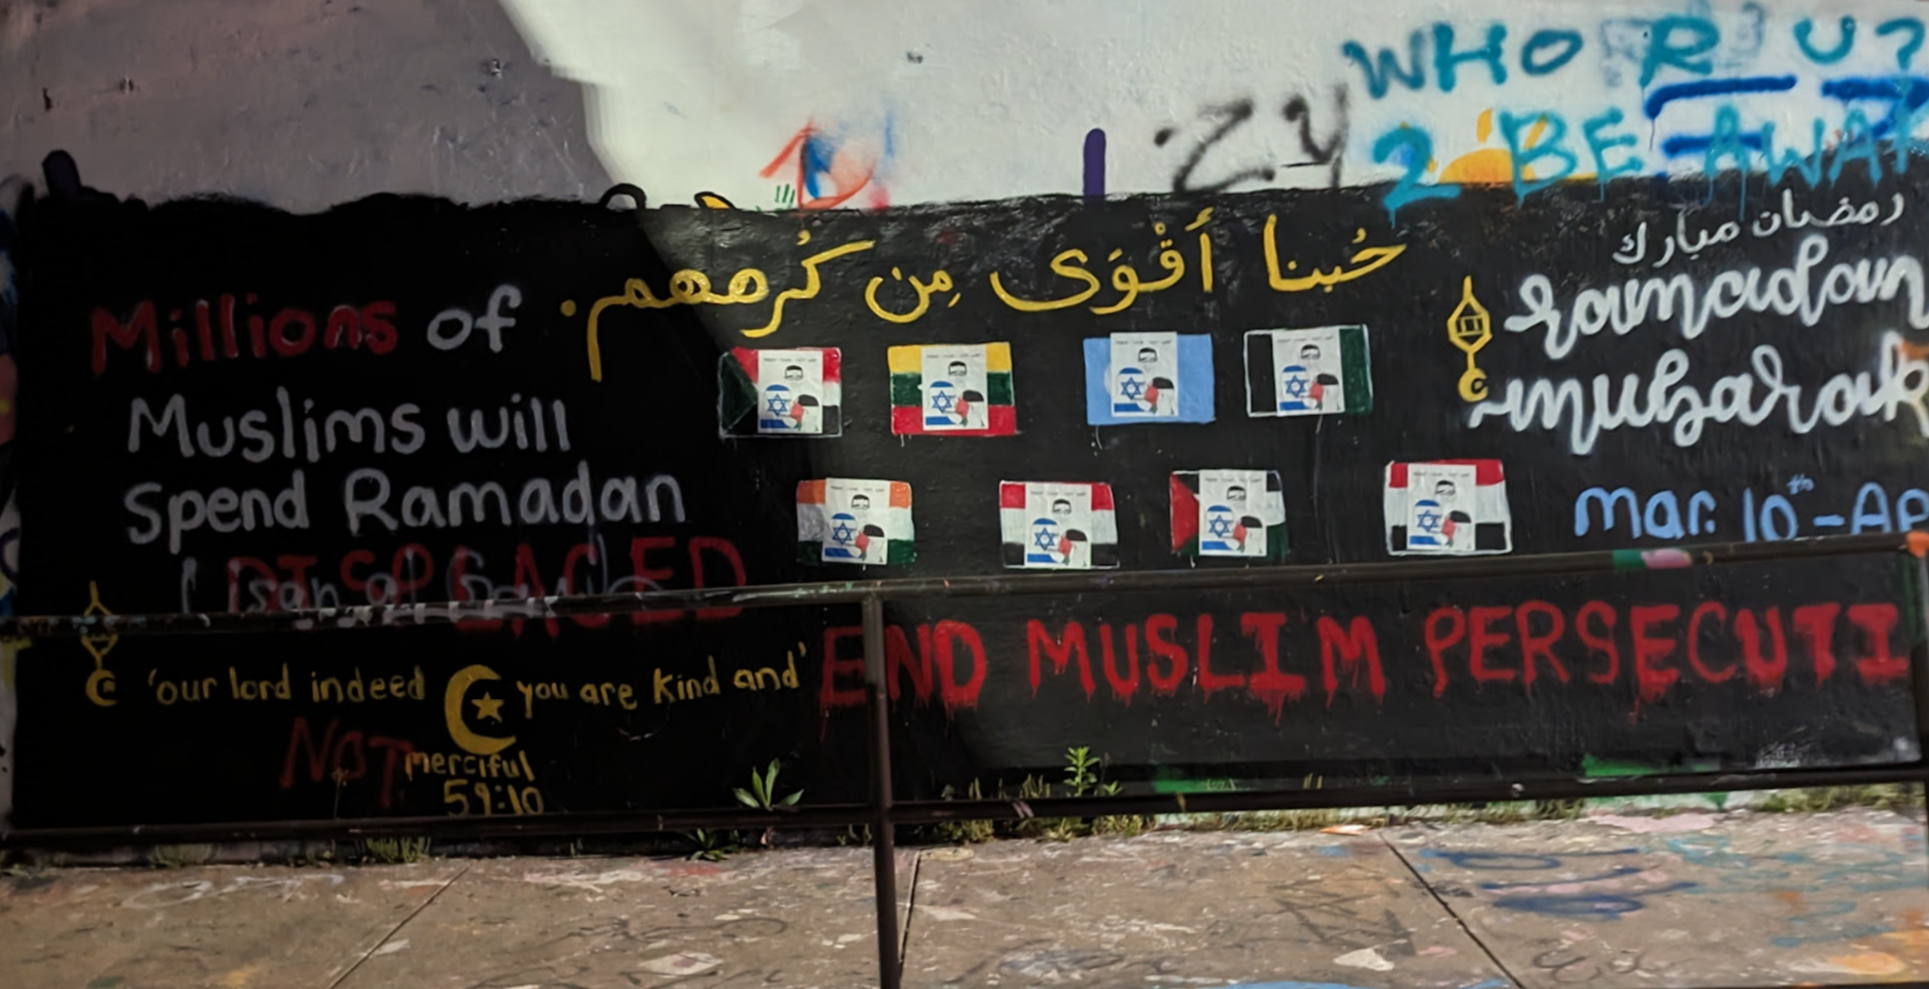 WHO R U?
2 BE AWA
ZY
حُبنا أَقْوَى مِن كُرههم.
رمضان مبارك
ramadan
mubarak
Mar. 10th - AP
Millions of
Muslims will
Spend Ramadan
DISPLACED
END MUSLIM PERSECUTI
'our lord indeed you are kind and'
NOT
merciful
59:10